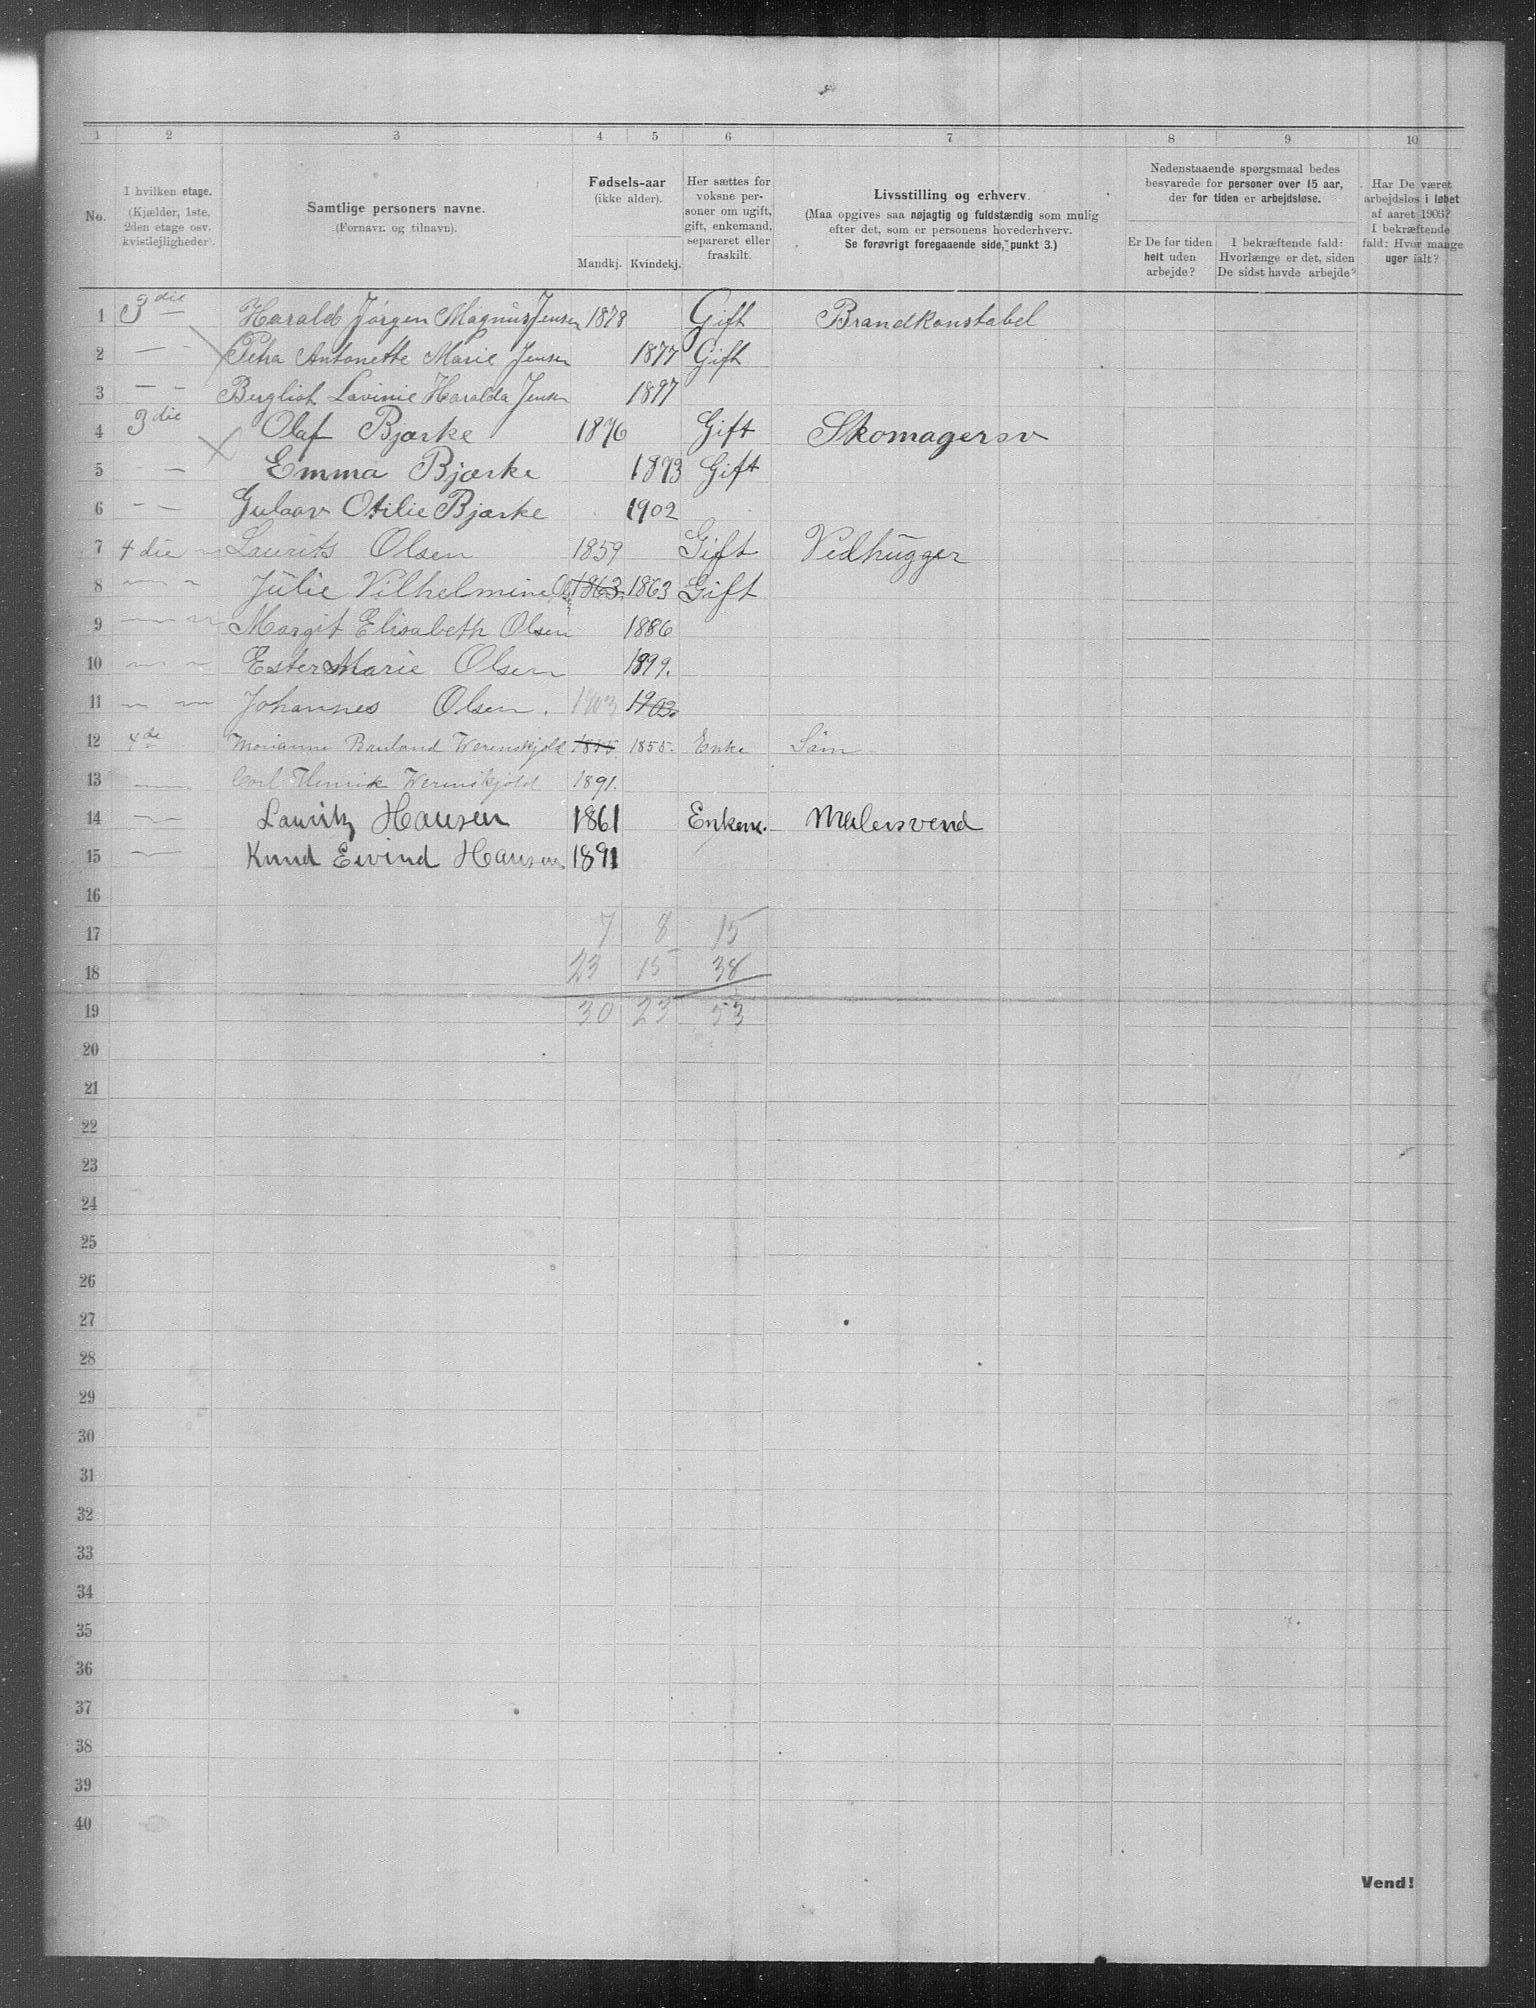 1 2 3 4 5 6 7 8 9 10
No.
I hvilken etage. (Kjælder, 1ste. 2den etage osv. kvistlejligheder).
Samtlige personers navne. (Fornavn og tilnavn).
Fødsels-aar (ikke alder).
Mandkj. Kvindekj.
Her sættes for voksne personer om ugift, gift, enkemand, separeret eller fraskilt.
Livsstilling og erhverv.
(Maa opgives saa nøjagtig og fuldstændig som mulig efter det, som er personens hovederhverv. Se forøvrigt foregaaende side, punkt 3.)
Nedenstaaende spørgsmaal bedes besvarede for personer over 15 aar, der for tiden er arbejdsløse.
Er De for tiden helt uden arbejde?
I bekræftende fald: Hvorlænge er det, siden De sidst havde arbejde?
Har De været arbejdsløs i løbet af aaret 1903? I bekræftende fald: Hvor mange uger ialt?
1 3die Harald Jørgen Magnus Jensen 1878 Gift Brandkonstabel
2 — - Petra Antonette Marie Jensen 1877 Gift
3 — - Bergliot Lavinie Haralda Jensen 1897
4 3die Olaf Bjærke 1876 Gift Skomagersv
5 - — Emma Bjærke 1873 Gift
6 — — Otilie Bjærke 1902
7 4die Laurits Olsen 1859 Gift Vedhugger
8 — Julie Vilhelmine Ols 1863 1863 Gift
9 — Margit Elisabeth Olsen 1886
10 — Ester Marie Olsen 1899.
11 — Johannes Olsen. 1903 1903.
12 4de Marianne Werenskjold 1855 1855. Enke Søm
13 — Carl Henrik Werenskjold 1891.
14 — Lauritz Hansen 1861 Enkem. Malersvend
15 — Knud Eivind Hansen 1891
16
17 7 8 15
18 23 15 38
19 30 23 53
20
21
22
23
24
25
26
27
28
29
30
31
32
33
34
35
36
37
38
39
40
Vend!